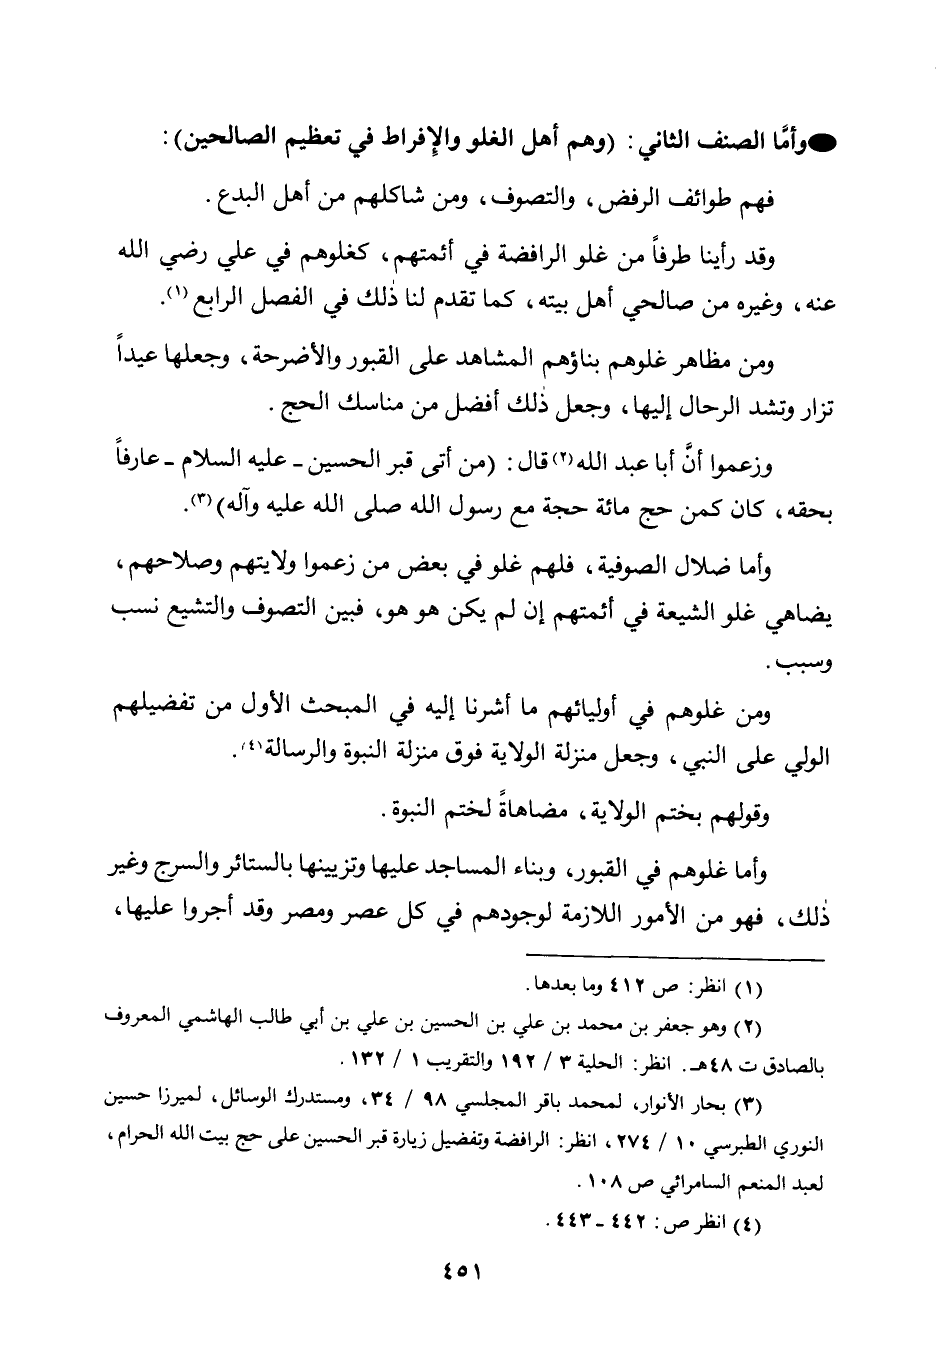 ●وأمَّا الصنف الثاني: (وهم أهل الغلو والإفراط في تعظيم الصالحين):
فهم طوائف الرفض، والتصوف، ومن شاكلهم من أهل البدع.
وقد رأينا طرفاً من غلو الرافضة في أئمتهم، كغلوهم في علي رضي الله
عنه، وغيره من صالحي أهل بيته، كما تقدم لنا ذٰلك في الفصل الرابع(١).
ومن مظاهر غلوهم بناؤهم المشاهد على القبور والأضرحة، وجعلها عيداً
تزار وتشد الرحال إليها، وجعل ذٰلك أفضل من مناسك الحج.
وزعموا أنَّ أبا عبد الله(٢)قال: (من أتى قبر الحسين ـ عليه السلام ـ عارفاً
بحقه، كان كمن حج مائة حجة مع رسول الله صلى الله عليه وآله)(٣).
وأما ضلال الصوفية، فلهم غلو في بعض من زعموا ولايتهم وصلاحهم،
يضاهي غلو الشيعة في أئمتهم إن لم يكن هو هو، فبين التصوف والتشيع نسب
وسبب.
ومن غلوهم في أوليائهم ما أشرنا إليه في المبحث الأول من تفضيلهم
الولي على النبي، وجعل منزلة الولاية فوق منزلة النبوة والرسالة(٤).
وقولهم بختم الولاية، مضاهاةً لختم النبوة.
وأما غلوهم في القبور، وبناء المساجد عليها وتزيينها بالستائر والسرج وغير
ذٰلك، فهو من الأمور اللازمة لوجودهم في كل عصر ومصر وقد أجروا عليها،
(١) انظر: ص ٤١٢ وما بعدها.
(٢) وهو جعفر بن محمد بن علي بن الحسين بن علي بن أبي طالب الهاشمي المعروف
بالصادق ت ٤٨هـ. انظر: الحلية ٣ / ١٩٢ والتقريب ١ / ١٣٢.
(٣) بحار الأنوار، لمحمد باقر المجلسي ٩٨ / ٣٤، ومستدرك الوسائل، لميرزا حسين
النوري الطبرسي ١٠ / ٢٧٤، انظر: الرافضة وتفضيل زيارة قبر الحسين على حج بيت الله الحرام،
لعبد المنعم السامرائي ص ١٠٨.
(٤) انظر ص: ٤٤٢ ـ ٤٤٣.
٤٥١